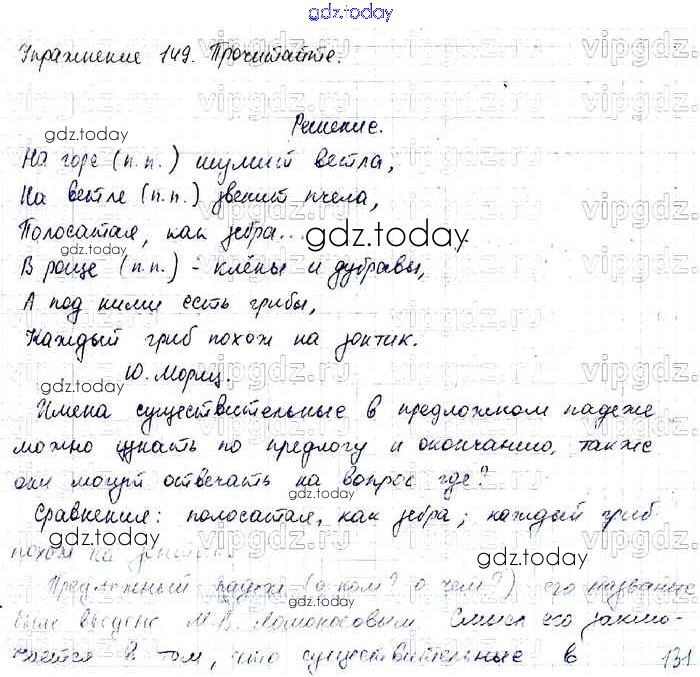 gdz.today
Упражнение 149. Прочитайте.
Решение.
На горе (п.п.) шумит ветла,
На ветле (п.п.) звенит пчела,
Полосатая, как зебра...
В роще (п.п.) - клёны и дубравы,
А под ними есть грибы,
Каждый гриб похож на зонтик.
Ю. Мориц.
Имена существительные в предложном падеже
можно узнать по предлогу и окончанию, также
они могут отвечать на вопрос где?
Сравнения: полосатая, как зебра; каждый гриб
похож на зонтик.
Предложный падеж (о ком? о чем?) его название
было введено М.В. Ломоносовым. Смысл его заклю-
чается в том, что существительные в
131